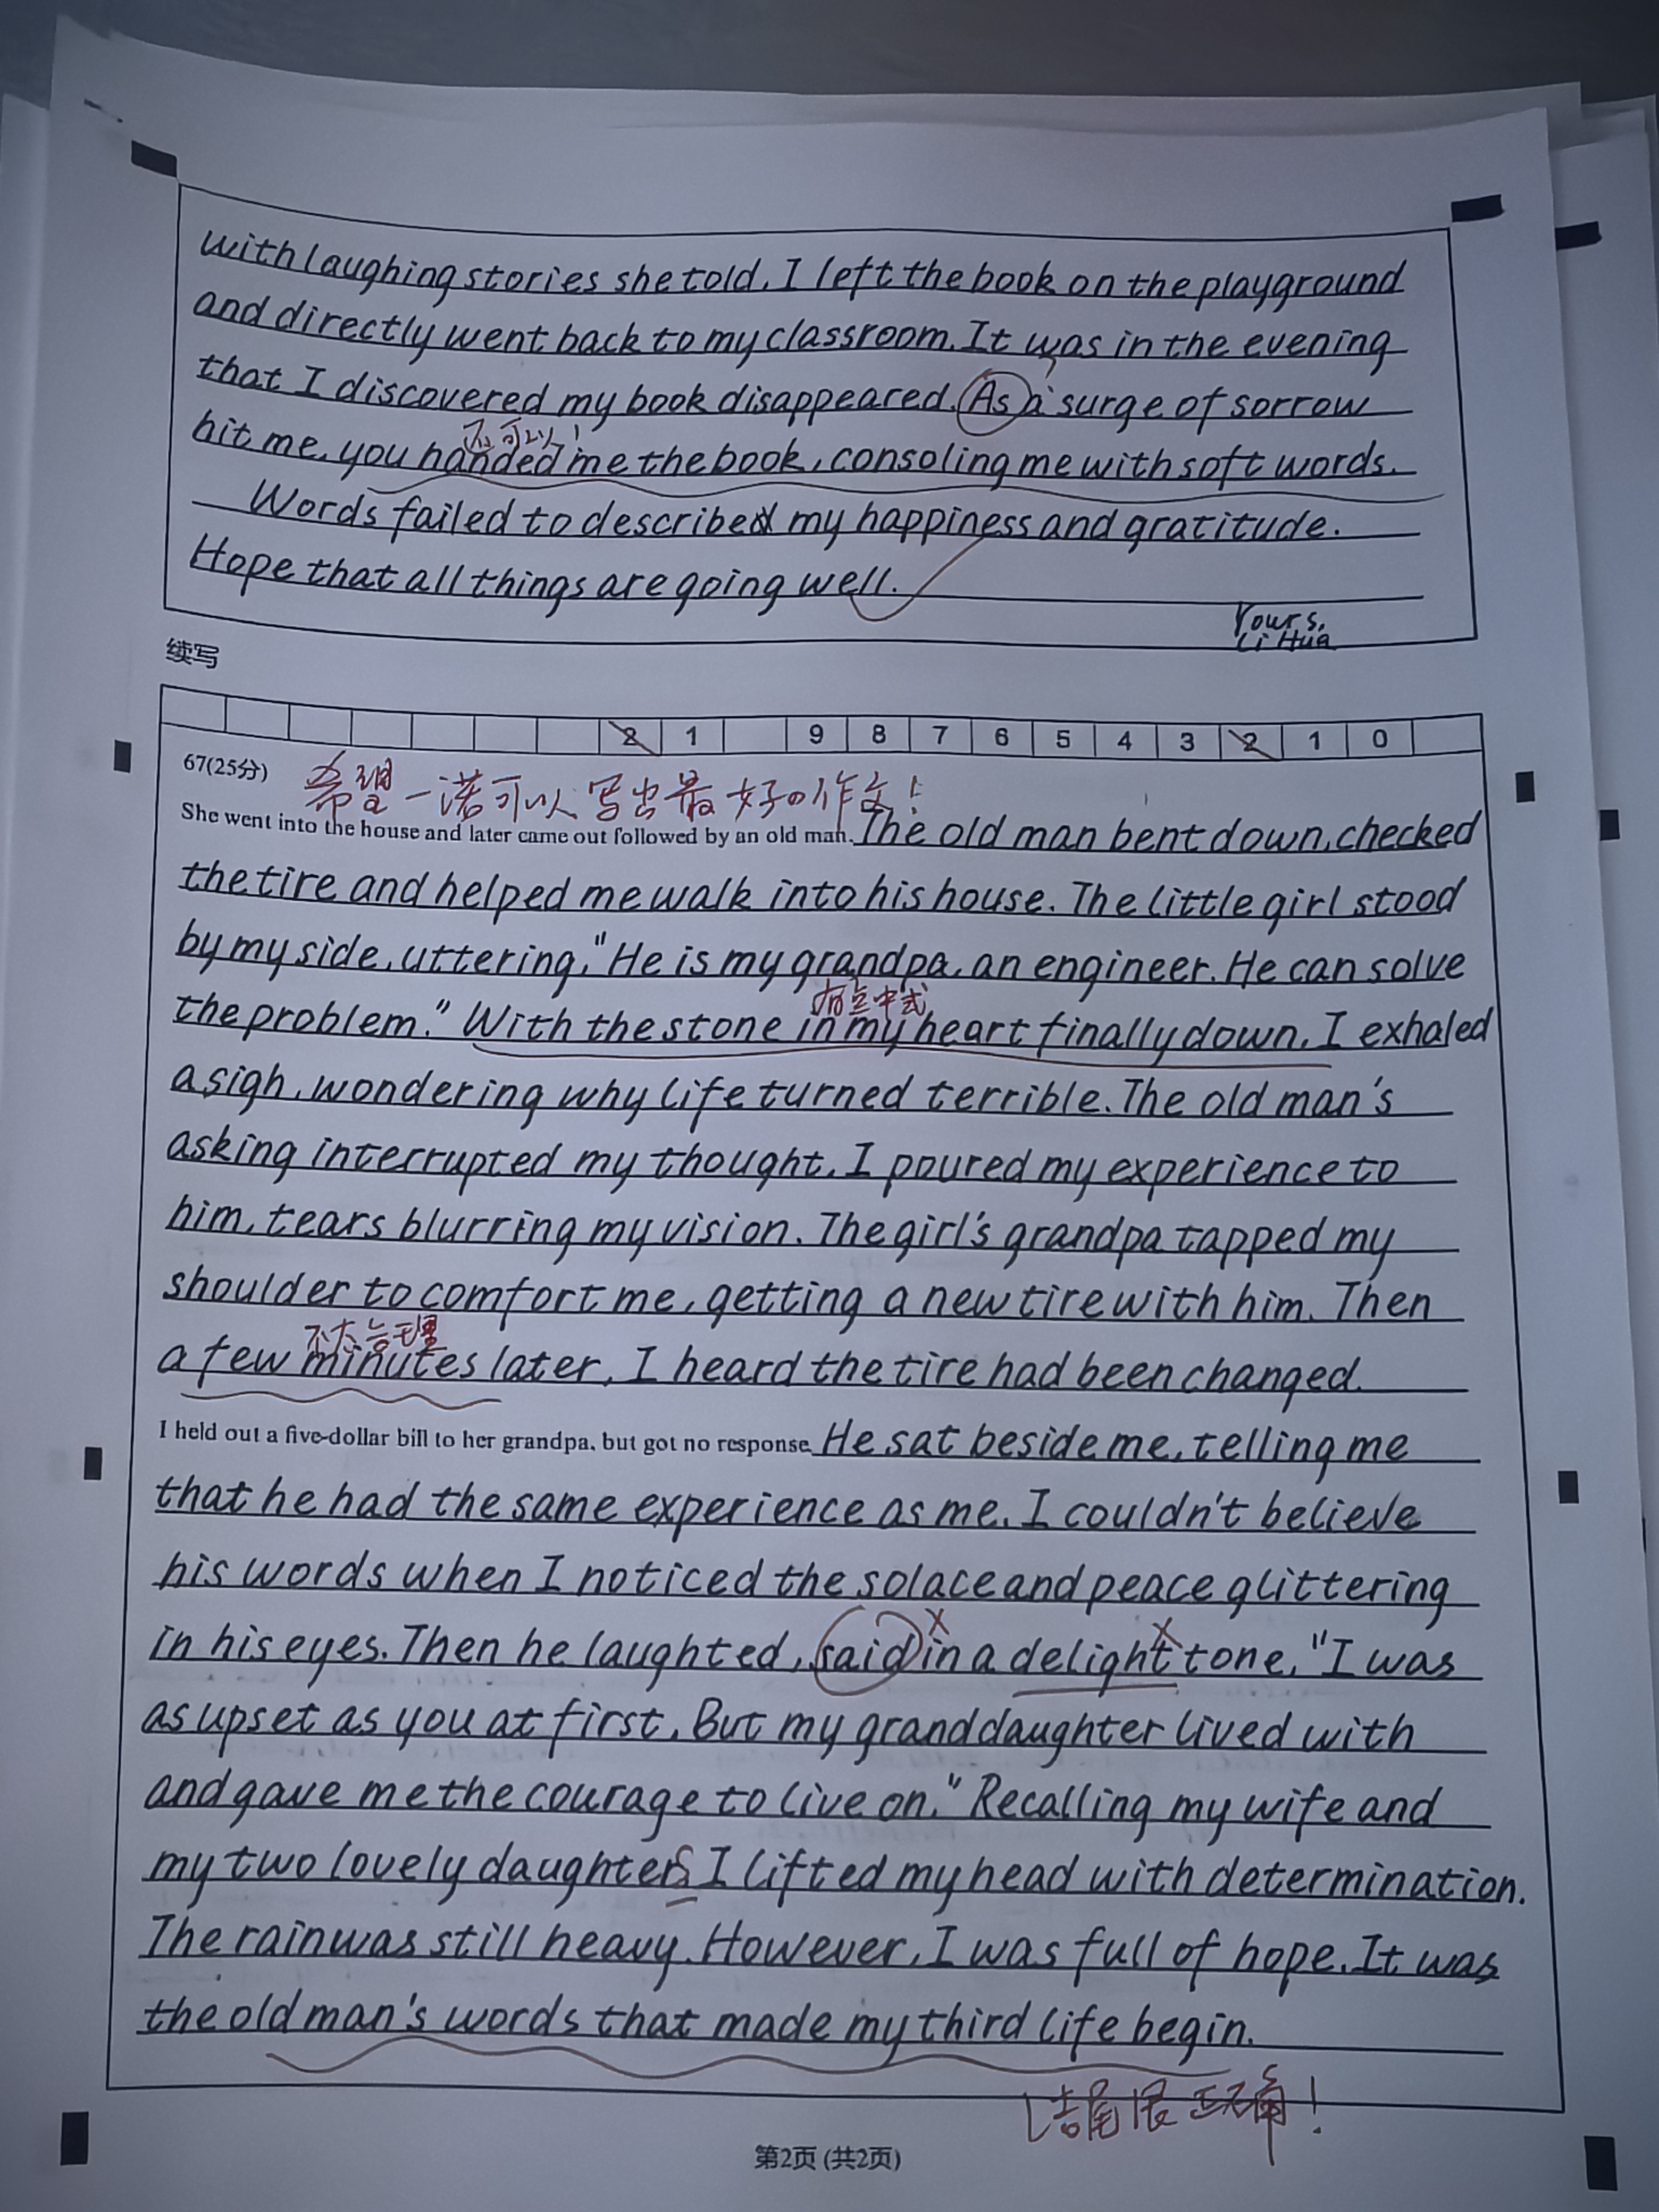 with laughing stories she told. I left the book on the playground
and directly went back to my classroom. It was in the evening
that I discovered my book disappeared. As a surge of sorrow
不可以!
hit me, you handed me the book, consoling me with soft words.
Words failed to described my happiness and gratitude.
Hope that all things are going well.
Yours,
Li Hua
续写
2 1 9 8 7 6 5 4 3 2 1 0
67(25分)
希望一诺可以写出最好の作文!
She went into the house and later came out followed by an old man. The old man bent down, checked
the tire and helped me walk into his house. The little girl stood
by my side, uttering, "He is my grandpa, an engineer. He can solve
有点中式
the problem." With the stone in my heart finally down, I exhaled
a sigh, wondering why life turned terrible. The old man's
asking interrupted my thought. I poured my experience to
him, tears blurring my vision. The girl's grandpa tapped my
shoulder to comfort me, getting a new tire with him. Then
不太合理
a few minutes later, I heard the tire had been changed.
I held out a five-dollar bill to her grandpa, but got no response. He sat beside me, telling me
that he had the same experience as me. I couldn't believe
his words when I noticed the solace and peace glittering
in his eyes. Then he laughted, said in a delight tone, "I was
as upset as you at first. But my granddaughter lived with
and gave me the courage to live on." Recalling my wife and
my two lovely daughters I lifted my head with determination.
The rain was still heavy. However, I was full of hope. It was
the old man's words that made my third life begin.
结尾很正确!
第2页 (共2页)